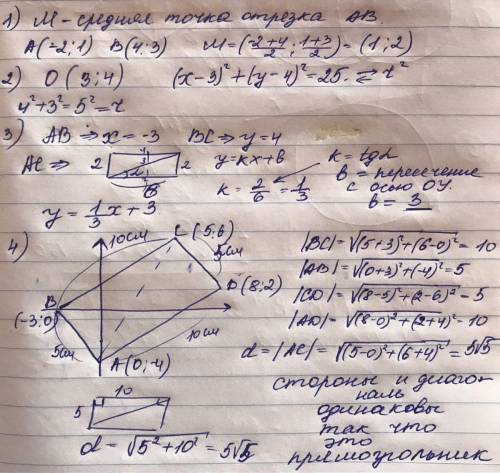 1) М - средняя точка отрезка АВ.
A(-2;1) B(4;3) M=(-2+4/2; 1+3/2)=(1;2)
2) O(3;4) (x-3)²+(y-4)²=25.
4²+3²=5²=r
3) AB ⇒ x=-3 BC ⇒ y=4
AC ⇒ 2 6 2 y=kx+b k=tgα
k=2/6=1/3 b = пересечение
с осью ОУ.
y=1/3x+3 b=3
4) 10см C(5;6)
5см
D(8;2)
B
(-3;0)
5см 10см
A(0;-4)
|BC|=√(5+3)²+(6-0)²=10
|AB|=√(0+3)²+(-4)²=5
|CD|=√(8-5)²+(2-6)²=5
|AD|=√(8-0)²+(2+4)²=10
d=|AC|=√(5-0)²+(6+4)²=5√5
10
5
d=√5²+10²=5√5
стороны и диаго-
наль
одинаковы
так что
это
прямоугольник